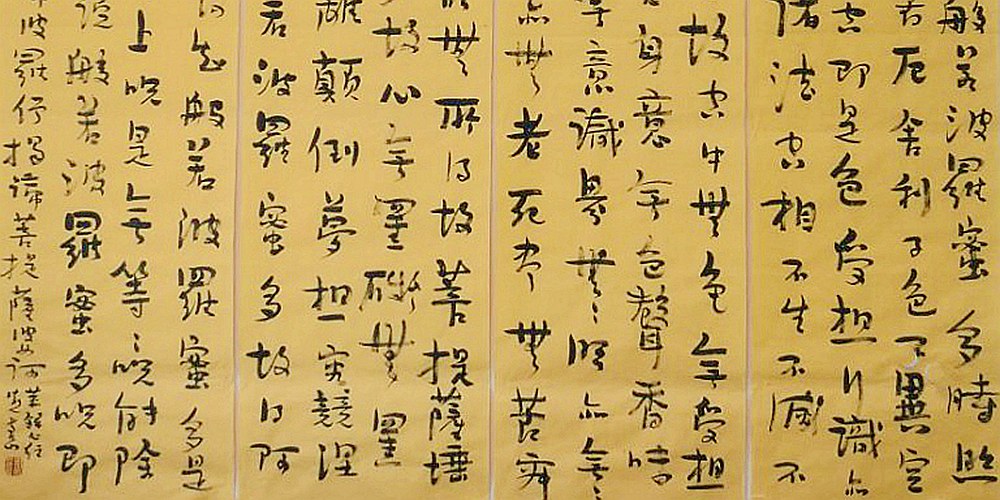 般若波羅蜜多時照
苦厄舍利子色不異空
空即是色受想行識亦
諸法空相不生不滅不
故空中無色无受想
身意无色聲香味
无意識界無〻明亦无〻
亦無老死盡無苦
以無所得故菩提薩埵
故心无罣礙無罣
離顛倒夢想究竟涅
若波羅蜜多故得阿
知般若波羅蜜多是
上呪是无等〻呪能除
說般若波羅蜜多呪即
諦波羅僧揭諦菩提薩婆訶